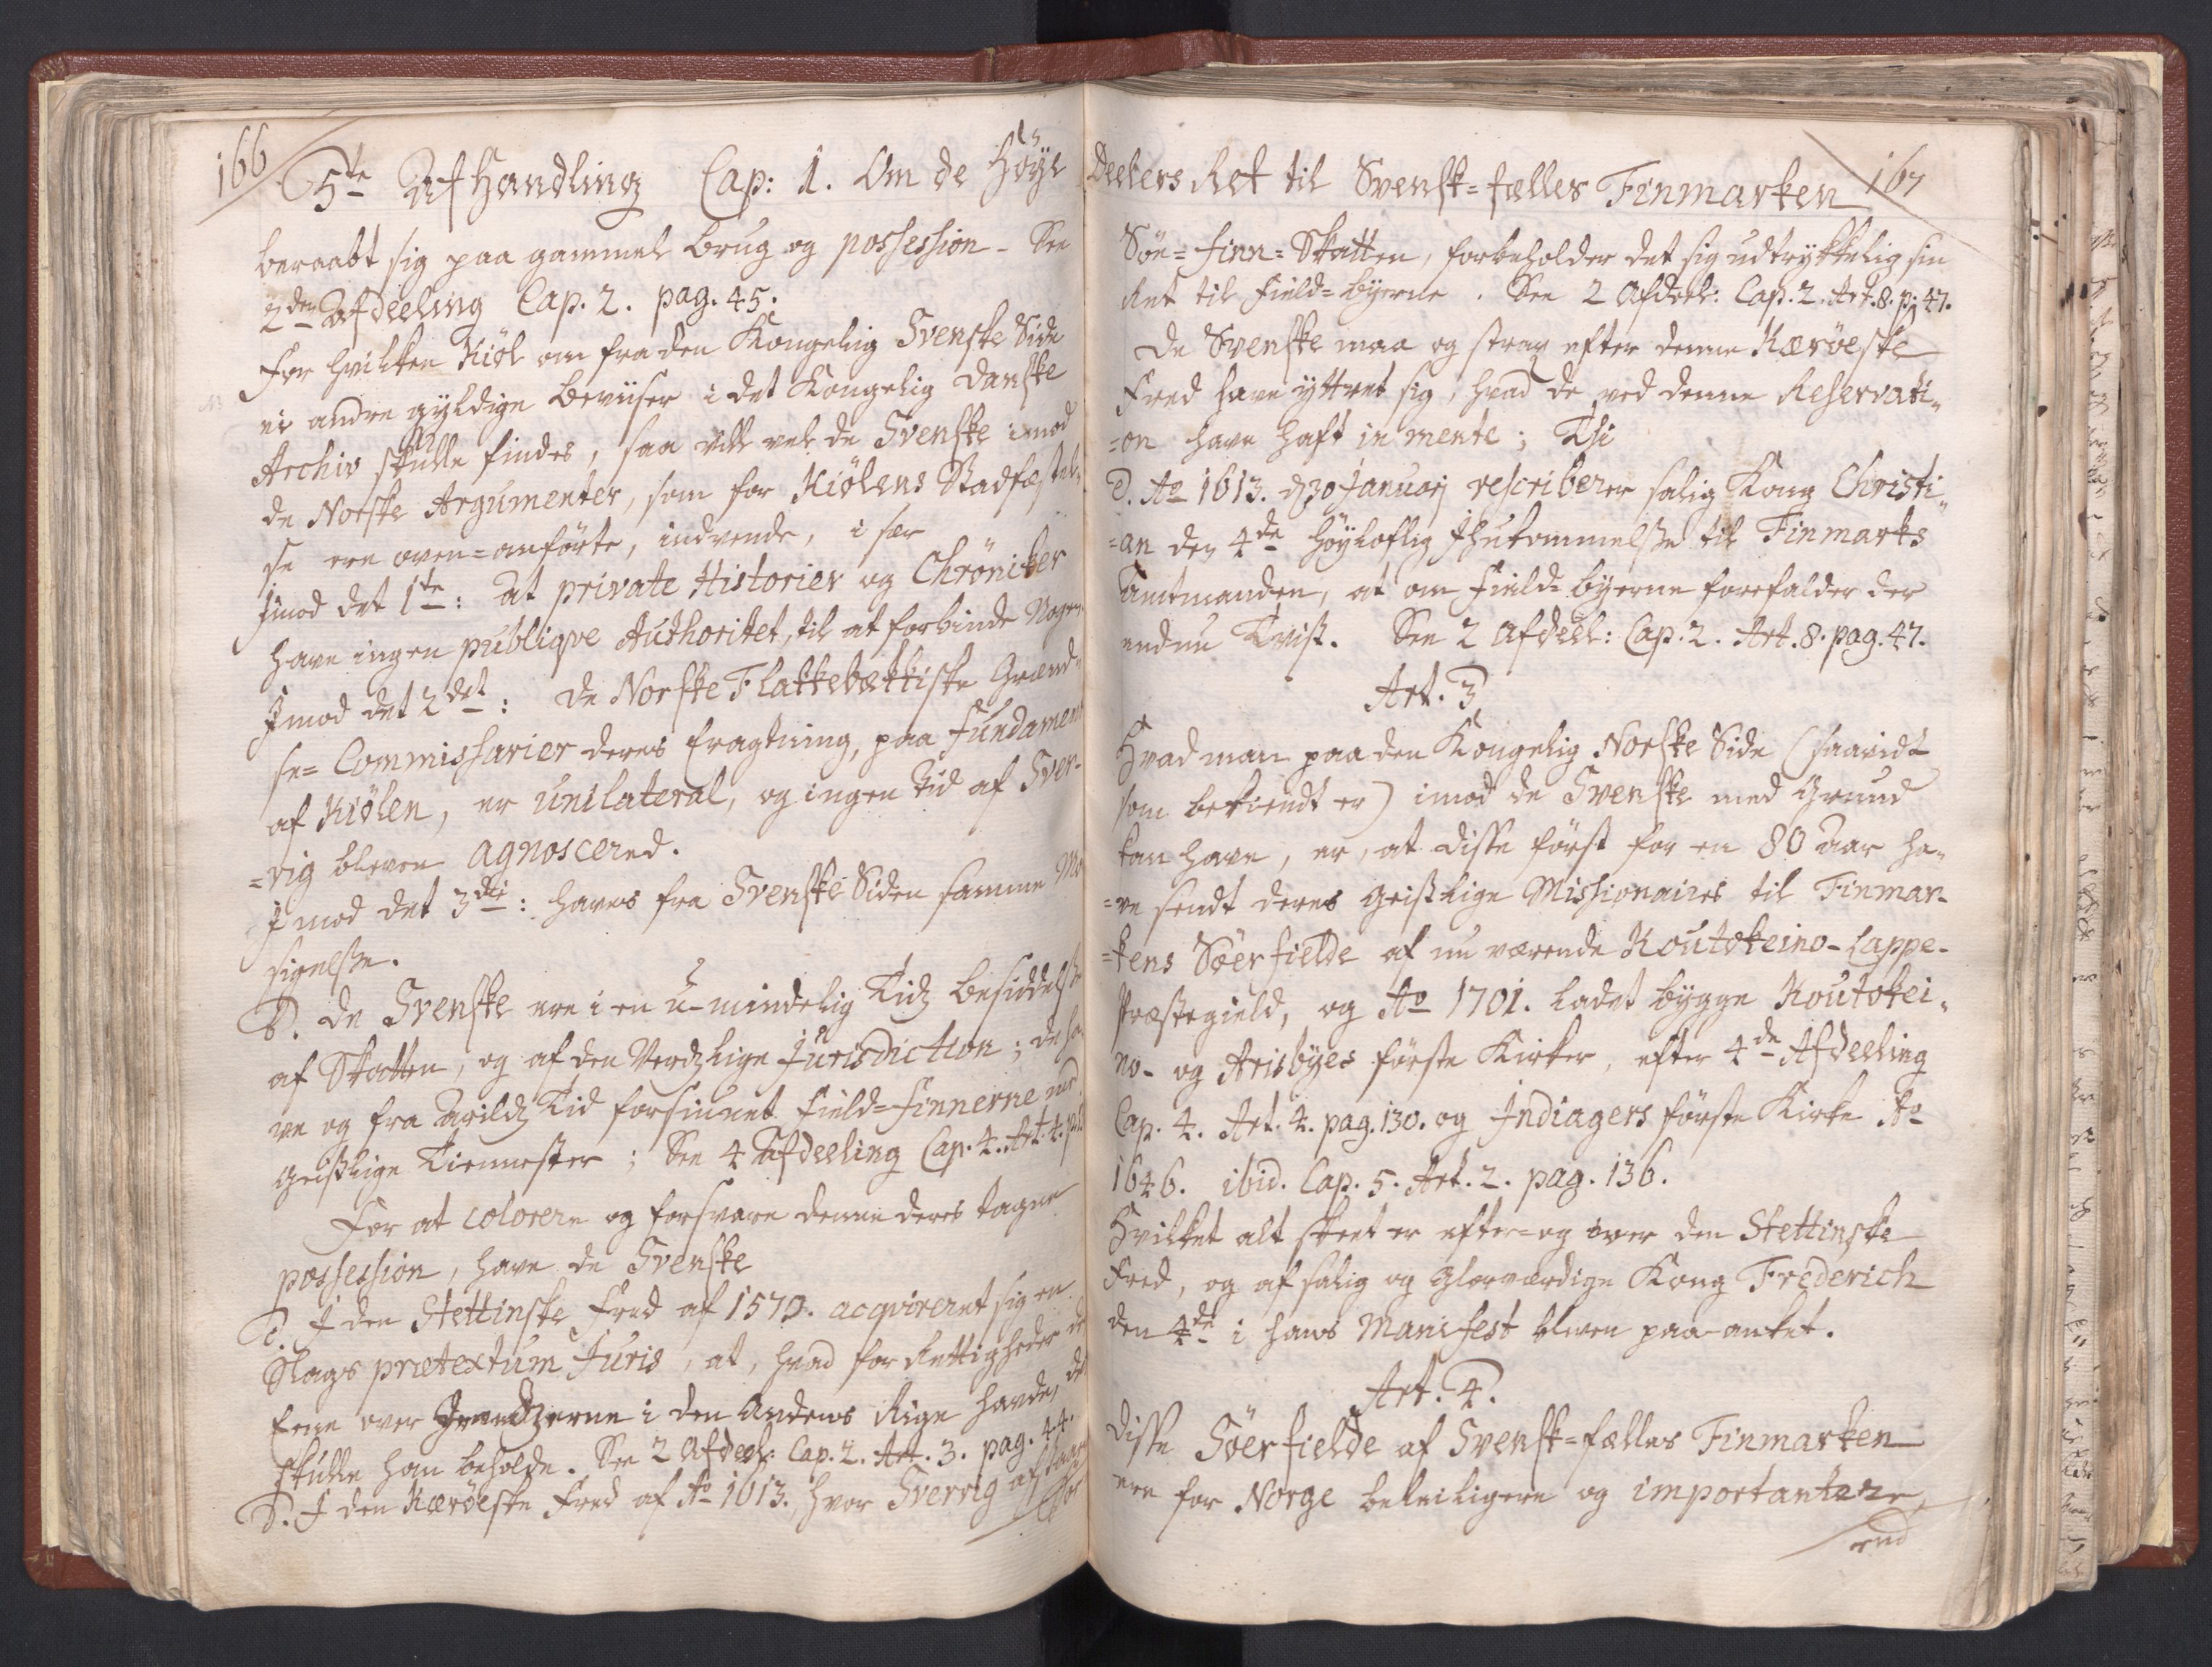 166
5te Afhandling Cap: 1. Om de Höye
beraabt sig paa gammel brug og possession. See
2den Afdeeling Cap. 2. pag. 45.
For hvilken Kiöl om fra den Kongelig Svenske Side
ei andre gyldige beviiser i det Kongelig Danske
Archiv skulle findes, saa vill vel de Svenske imod
de Norske Argumenter, som for Kiölens Stadfæstel-
se ere oven=anförte, indvende, i sær
Imod det 1te: At private Historier og Chröniker
have ingen publiqve Authoritet, til at forbinde Nogen
Imod det 2det: De Norske Flakkebækkiske Grænd-
se=Commissarier deres Eragtning, paa Fundament
af Kiölen, er unilateral, og ingen Tid af Sver-
=rig bleven agnoscered.
Imod det 3die: haves fra Svenske Siden samme
sigelse.
B. De Svenske ere i en u-mindelig Tidz besiddelse
af Skatten, og af den Verdzlige Jurisdiction; de ha-
ve og fra Arildz Tid forsiunet Field=Finnerne med
geistlige Tiennester; See 4 Afdeeling Cap. 4. Art. 4.
For at colorere og forsvare denne deres tagne
possession, have de Svenske
C. I den Stettinske Fred af 1570. acqvireret sig en
Slags prætextum Juris, at, hvad for Rettigheder
Eene over Grendzerne i den Andens Rige havde, de
skulle han beholde. See 2 Afdeel: Cap. 2. Art. 3. pag. 44.
D. I den Kæröeske Fred af Ao 1613., hvor Sverrig afstaaer
Söe
Deelers Ret til Svensk=fælles Finmarken
167
Söe=Finn=Skatten, forbeholder det sig udtrykkelig sin
Ret til Field=byerne. See 2 Afdeel: Cap. 2. Art. 8. p: 47.
De Svenske maa og strax efter denne Kæröeske
Fred have yttret sig, hvad de ved denne Reservati-
=on have haft in mente; Thi
E. Ao 1613. d. 30 Januarj rescriberer salig Kong Christi-
=an den 4de Höyloflig Ihukommelse til Finmarks
Amtmanden, at om Field-byerne forefalder der
endnu Tvist. See 2 Afdeel: Cap. 2. Art. 8. pag. 47.
Art. 3
Hvad man paa den Kongelig Norske Side (saavidt
som bekiendt er) imod de Svenske med Grund
kan have, er, at disse först for en 80 Aar ha-
=ve sendt deres geistlige Missionaires til Finmar-
=kens Söer fielde af nu værende Koutokeino-Lappe-
Præstegield, og Ao 1701. ladet bygge Koutokei-
no- og Arisbyes förste Kirker, efter 4de Afdeeling
Cap. 4. Art. 4. pag. 130. og Indiagers förste Kirke Ao
1646. ibid. Cap. 5. Art. 2. pag. 136.
Hvilket alt skeet er efter= og over den Stettinske
Fred, og af salig og Glorværdige Kong Frederich
den 4de i hans Manifest bleven paa-anket.
Art. 4.
Disse Söerfielde af Svensk=fælles Finmarken
ere for Norge beleiligere og importantere,
end